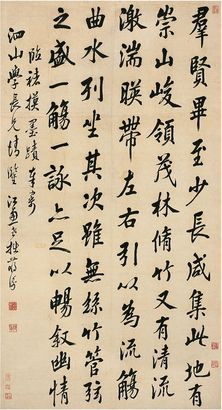 羣賢畢至少長咸集此地有
崇山峻領茂林脩竹又有清流
激湍暎帶左右引以為流觴
曲水列坐其次雖無絲竹管弦
之盛一觴一詠亦足以暢叙幽情
臨 摸墨蹟奉寄
泗山學長兄清鑒